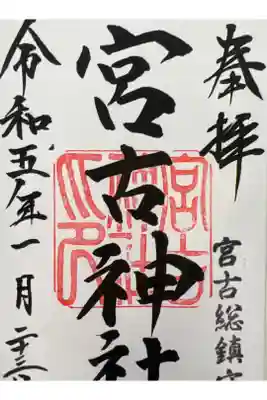 奉拝
宮古総鎮守
宮古神社
令和五年一月二十三日